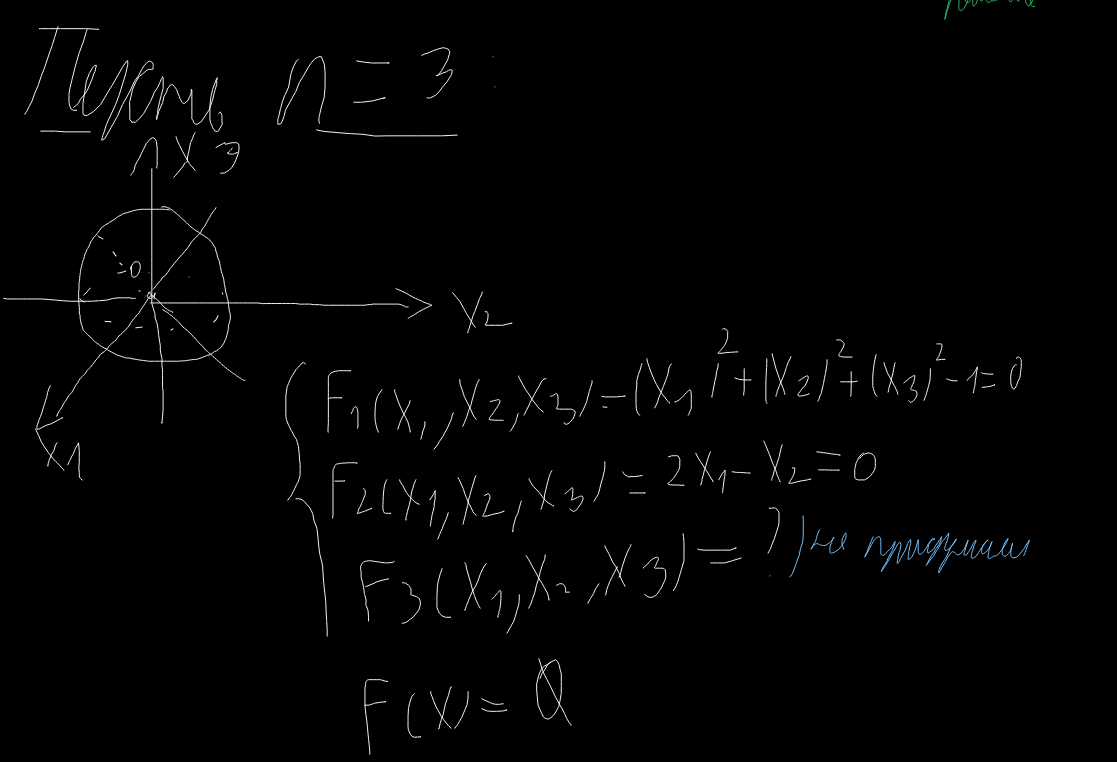 Пусть n = 3 :
X3
0
X2
X1
F1(X1,X2,X3) = (X1)²+(X2)²+(X3)²-1=0
F2(X1,X2,X3) = 2X1-X2=0
F3(X1,X2,X3) = ? ) не придумали
F(X)=0